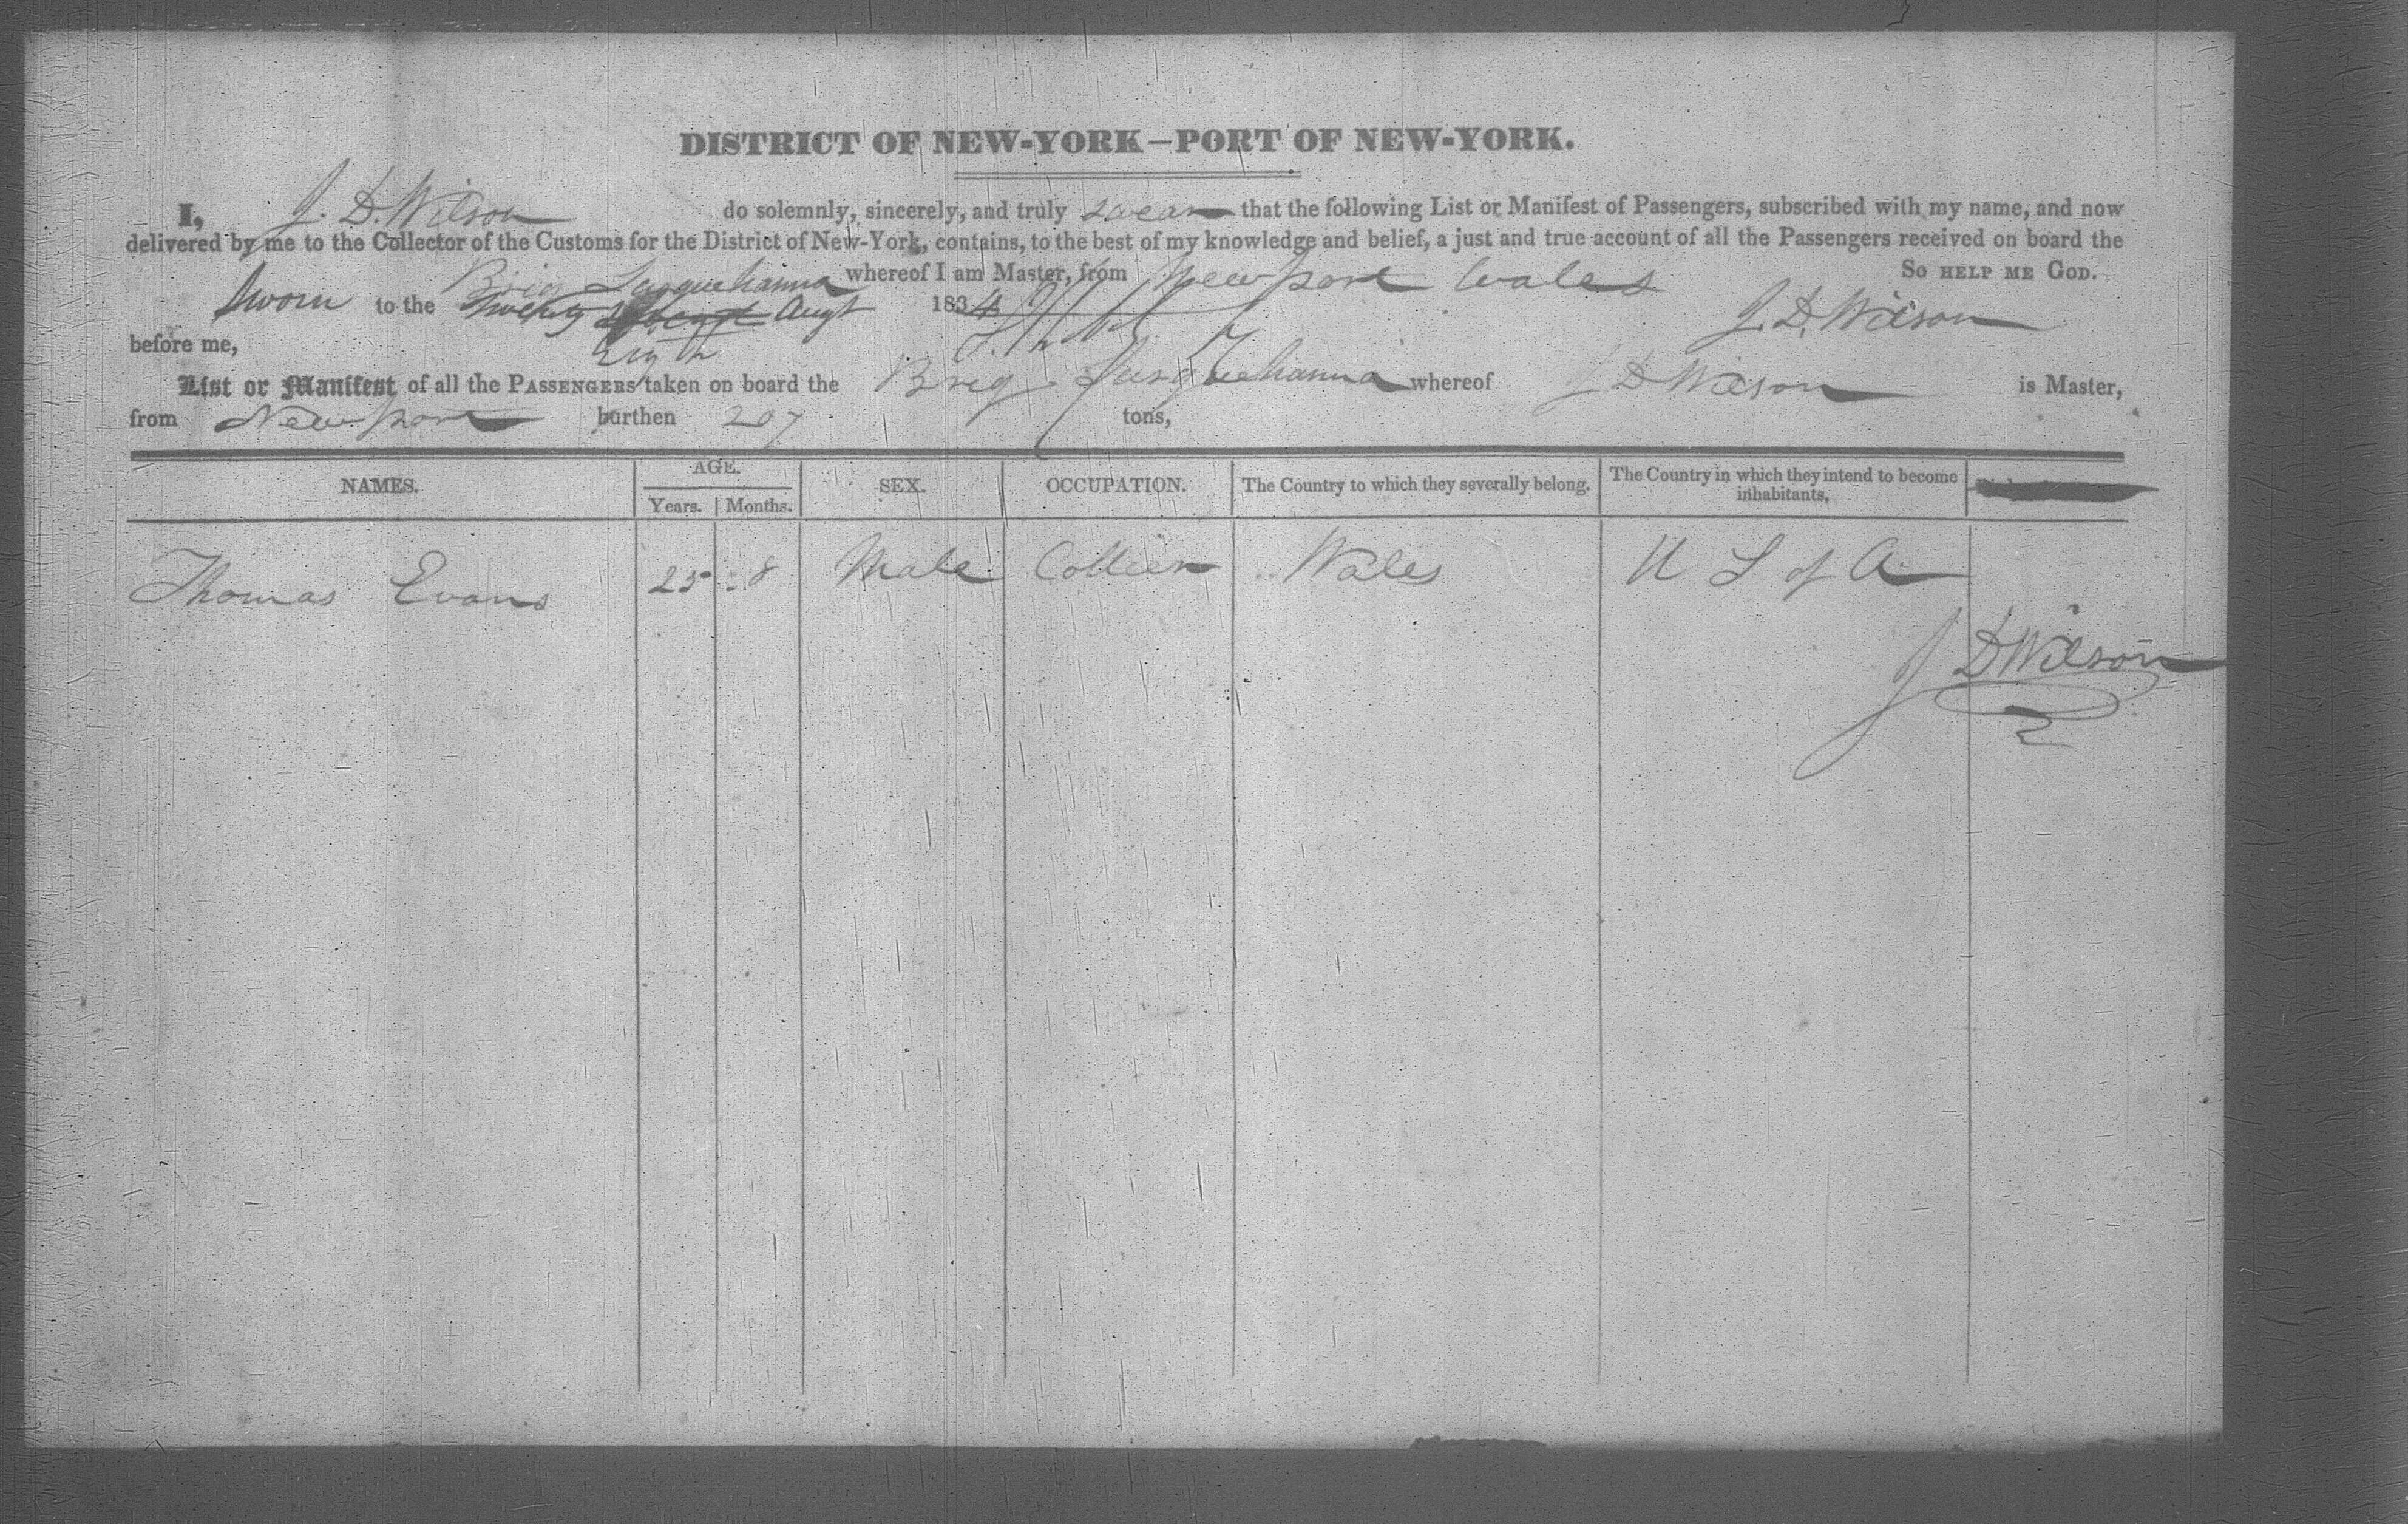 DISTRICT OF NEW-YORK—PORT OF NEW-YORK.
I, J. D. Wilson do solemnly, sincerely, and truly swear that the following List or Manifest of Passengers, subscribed with my name, and now
delivered by me to the Collector of the Customs for the District of New-York, contains, to the best of my knowledge and belief, a just and true account of all the Passengers received on board the
Brig Susquehanna whereof I am Master, from Newport Wales So HELP ME GOD.
Sworn to the Twenty Augt 1834 J. D. Wilson
before me, Eigth
List or Manifest of all the PASSENGERS taken on board the Brig Susquehanna whereof J D Wilson is Master,
from Newport burthen 207 tons,
NAMES. AGE. Years. Months. SEX. OCCUPATION. The Country to which they severally belong. The Country in which they intend to become inhabitants,
Thomas Evans 25 8 Male Collier Wales U S of A
J D Wilson